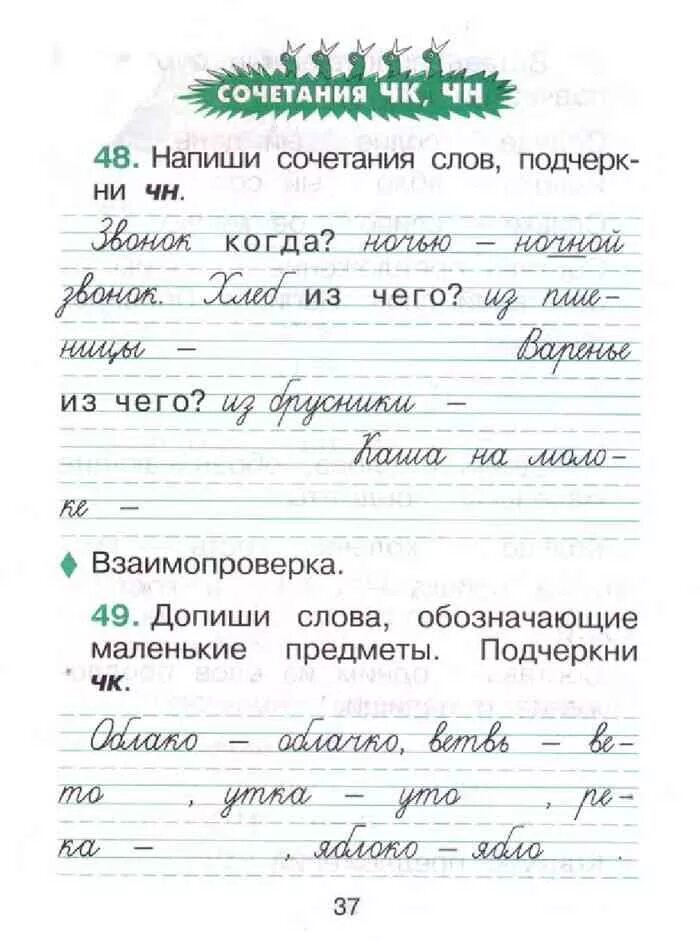 СОЧЕТАНИЯ ЧК, ЧН
48. Напиши сочетания слов, подчерк-
ни чн.
Звонок когда? ночью – ночной
звонок. Хлеб из чего? из пше-
ницы – Варенье
из чего? из брусники –
Каша на моло-
ке –
♦ Взаимопроверка.
49. Допиши слова, обозначающие
маленькие предметы. Подчеркни
чк.
Облако – облачко, ветвь – ве-
то , утка – уто , ре-
ка – , яблоко – ябло .
37